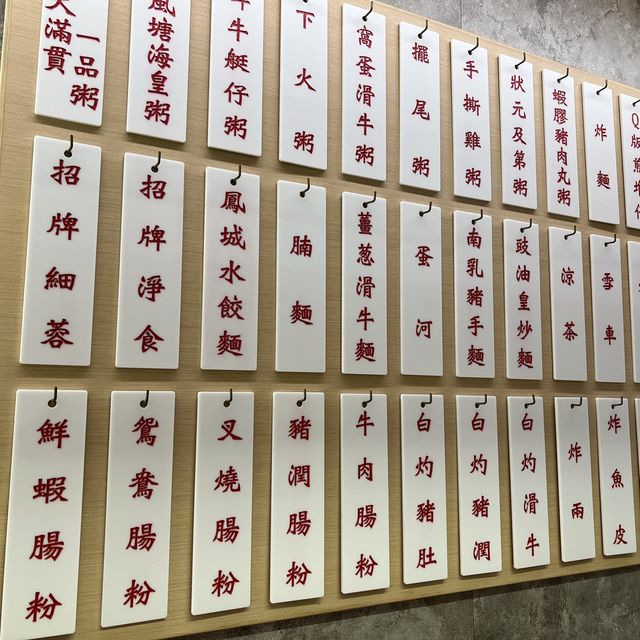 大滿貫
一品粥
風塘海皇粥
牛艇仔粥
下火粥
窩蛋滑牛粥
擺尾粥
手撕雞粥
狀元及第粥
蝦膠豬肉丸粥
炸麵
招牌細蓉
招牌淨食
鳳城水餃麵
腩麵
薑蔥滑牛麵
蛋河
南乳豬手麵
豉油皇炒麵
涼茶
雪車
鮮蝦腸粉
鴛鴦腸粉
叉燒腸粉
豬潤腸粉
牛肉腸粉
白灼豬肚
白灼豬潤
白灼滑牛
炸兩
炸魚皮